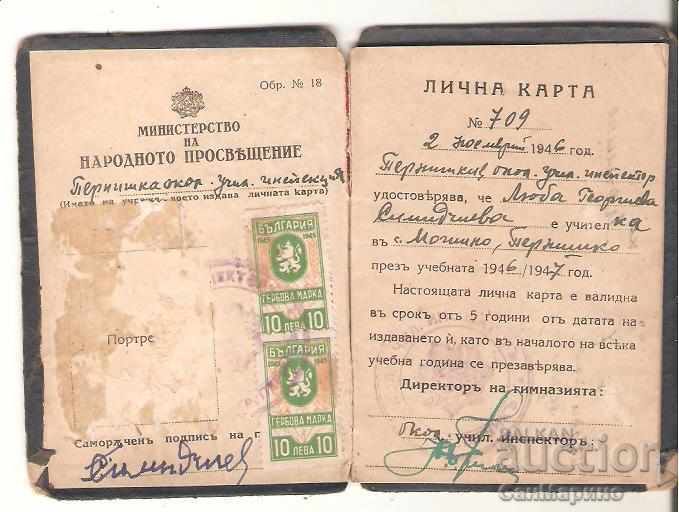 Обр. № 18
МИНИСТЕРСТВО
НА
НАРОДНОТО ПРОСВѢЩЕНИЕ
Пернишка окол. учил. инспекция
(Името на учреж. което издава личната карта)
Портре
Саморѫченъ подпись на г
БЪЛГАРИЯ
1945 1945
ГЕРБОВА МАРКА
10 ЛЕВА 10
БЪЛГАРИЯ
1945
ГЕРБОВА МАРКА
10 ЛЕВА 10
ЛИЧНА КАРТА
№ 709
2 ноемврий 1946 год.
Пернишкия окол. учил. инспектор
удостовѣрява, че Люба Георгиева
Симидчиева е учителка
въ с. Мошино, Пернишко
презъ учебната 1946/1947 год.
Настоящата лична карта е валидна
въ срокъ отъ 5 години отъ датата на
издаването ѝ, като въ началото на всѣка
учебна година се презавѣрява.
Директоръ на гимназията:
Окол. учил. инспекторъ:
BALKAN
auction
СанМарино